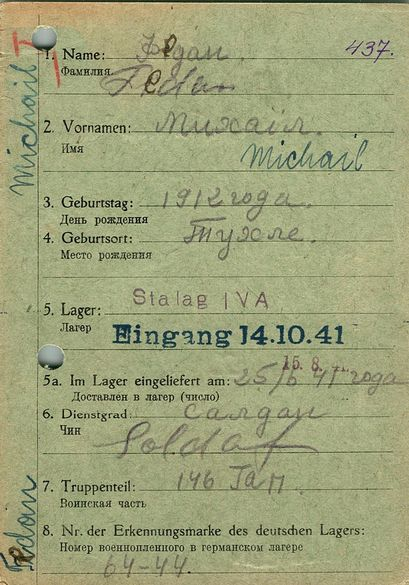 1. Name: Федан. 437.
Фамилия Fedan
2. Vornamen: Михаил.
Имя Michail
3. Geburtstag: 1912 года.
День рождения
4. Geburtsort: Тухле.
Место рождения
5. Lager: Stalag IVA
Лагерь Eingang 14.10.41
15. 8.
5a. Im Lager eingeliefert am: 25/6 41 года
Доставлен в лагерь (число)
6. Dienstgrad: салдан
Чин Soldat
7. Truppenteil: 146 Гап
Воинская часть
8. Nr. der Erkennungsmarke des deutschen Lagers:
Номер военнопленного в германском лагере
64-44.
Michail
Fedan